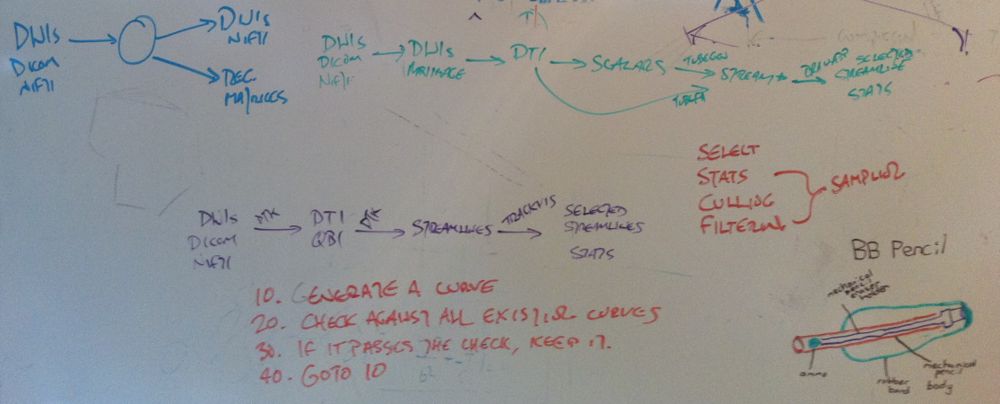 DWIs
DICOM
NIFTI
DWIs
NIFTI
DEC.
MATRICES
DWIs
DICOM
NIFTI
DWIs
DTI
SCALARS
TUBEGEN
STREAM
SELECTED
STREAMLINE
STATS
SELECT
STATS
CULLING
FILTERING
SAMPLING
DWIs
DICOM
NIFTI
DTI
QBI
STREAMLINES
TRACKVIS
SELECTED
STREAMLINES
STATS
10. GENERATE A CURVE
20. CHECK AGAINST ALL EXISTING CURVES
30. IF IT PASSES THE CHECK, KEEP IT.
40. GOTO 10
BB Pencil
mechanical
pencil
eraser
holder
ammo
rubber
band
mechanical
pencil
body